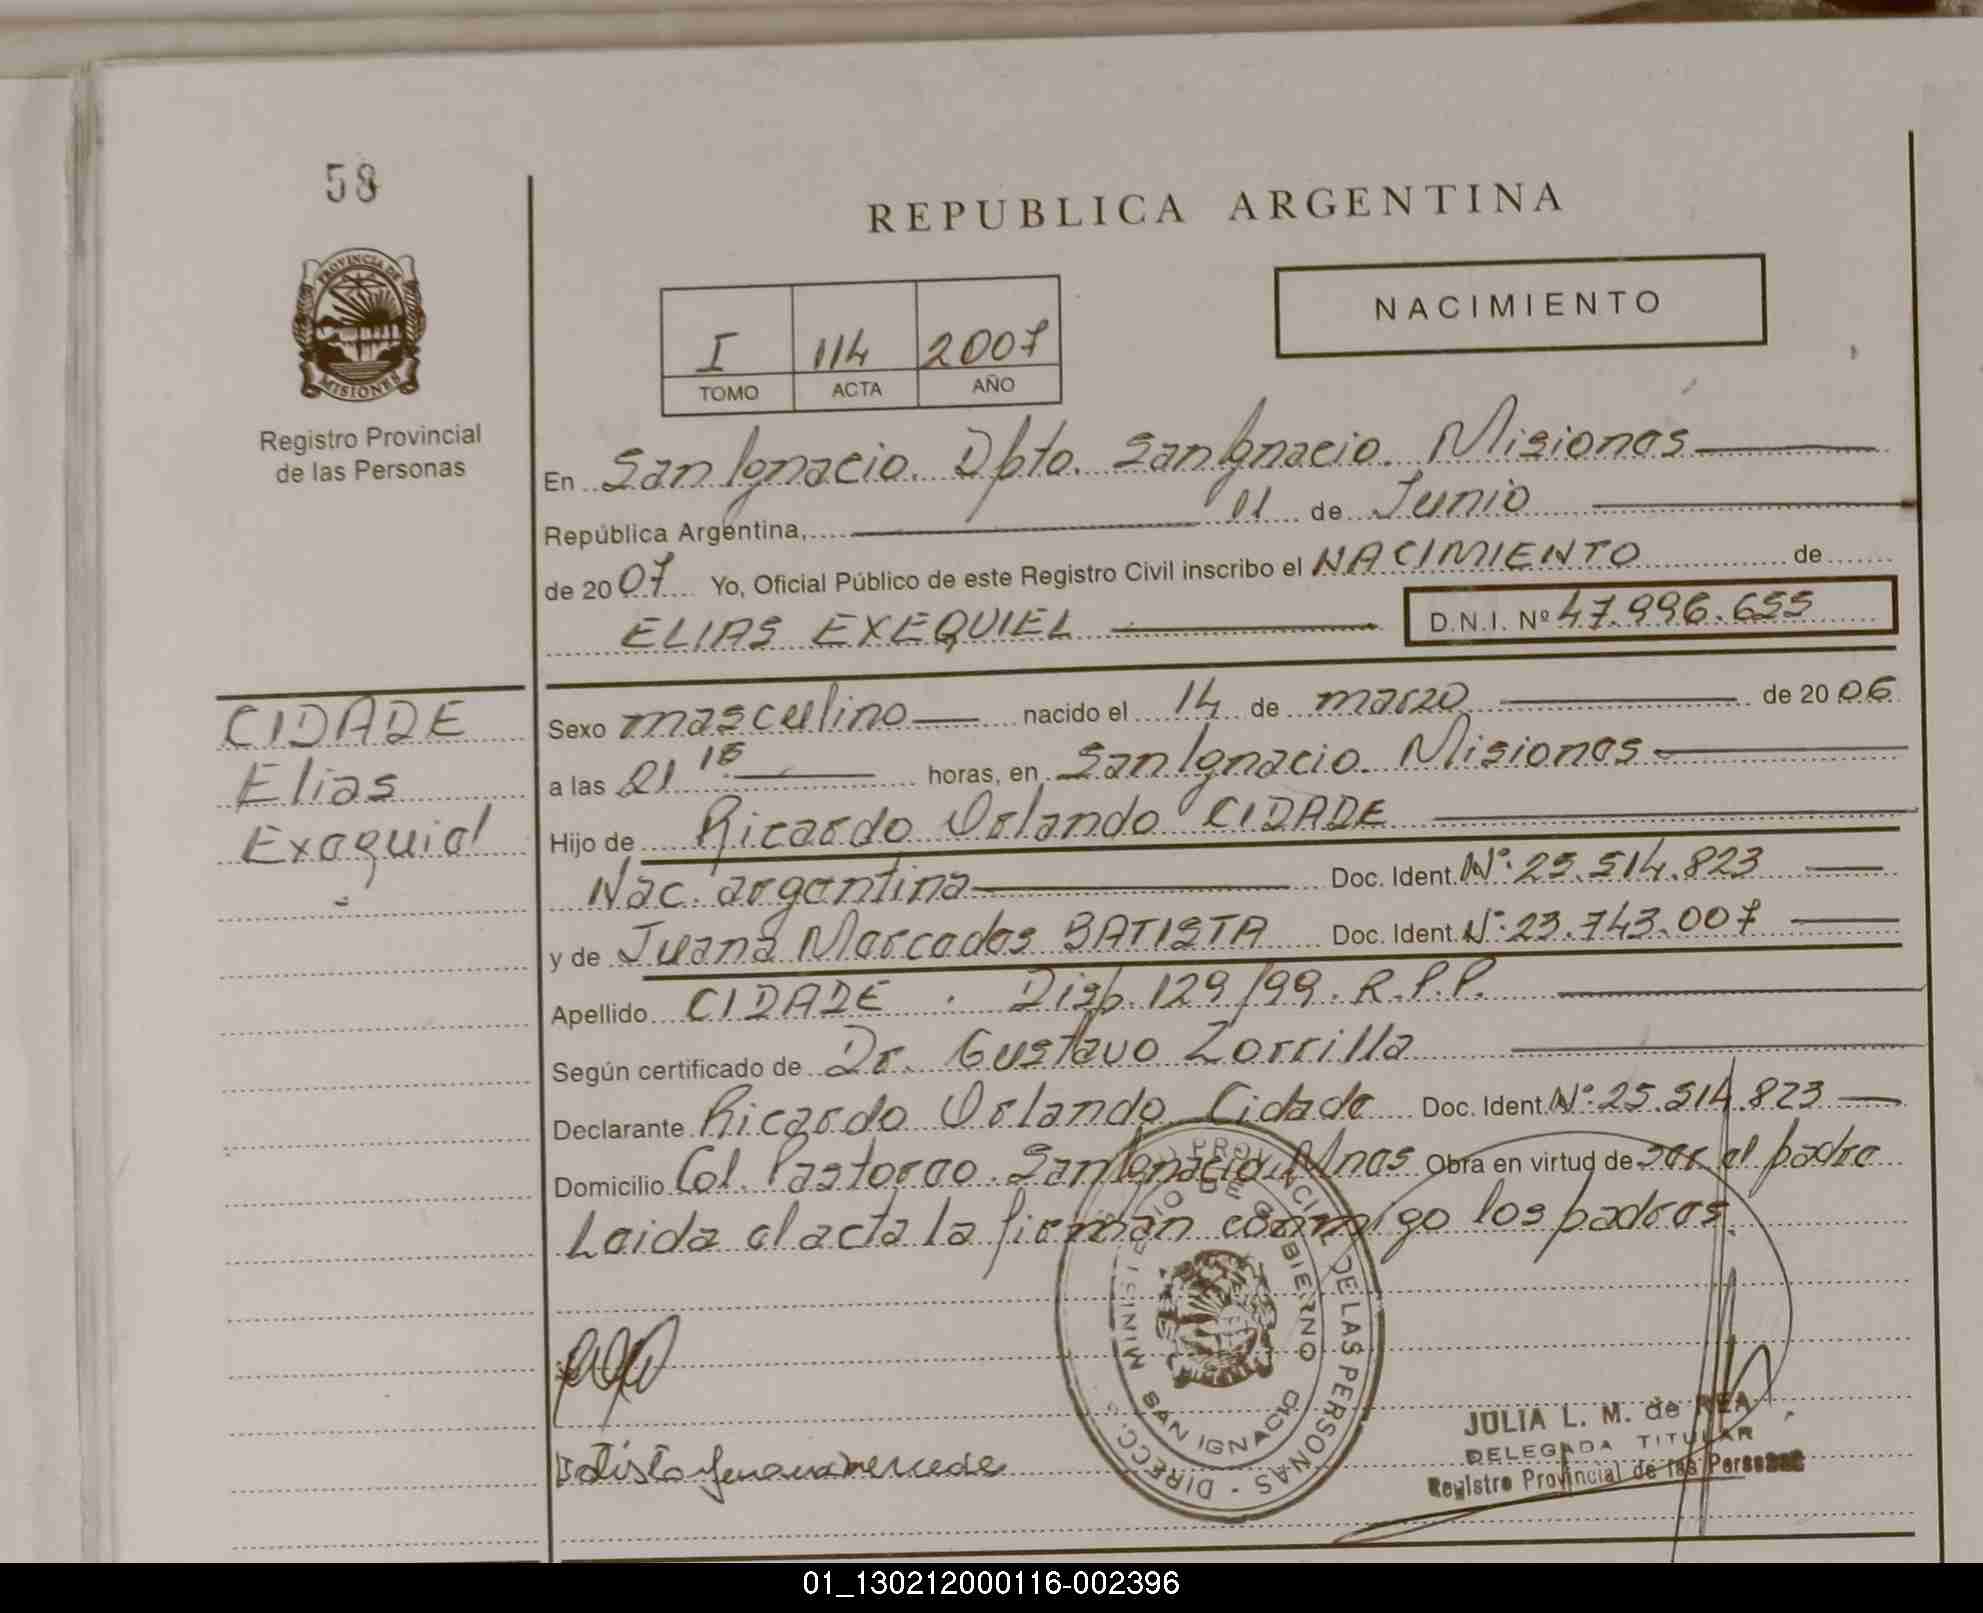 58
PROVINCIA DE
MISIONES
Registro Provincial
de las Personas
REPUBLICA ARGENTINA
I 114 2007
TOMO ACTA AÑO
NACIMIENTO
En San Ignacio. Dpto. San Ignacio. Misiones
República Argentina, 01 de Junio
de 2007 Yo, Oficial Público de este Registro Civil inscribo el NACIMIENTO de
ELIAS EXEQUIEL D.N.I. Nº 47.996.655
CIDADE
Elias
Exequiel
Sexo masculino nacido el 14 de marzo de 2006
a las 21 15 horas, en San Ignacio. Misiones
Hijo de Ricardo Orlando CIDADE
Nac. argentina Doc. Ident. Nº: 25.514.823
y de Juana Mercedes BATISTA Doc. Ident. Nº: 23.743.007
Apellido CIDADE . Disp. 129/99. R.P.P.
Según certificado de Dr. Gustavo Zorrilla
Declarante Ricardo Orlando Cidade Doc. Ident. Nº 25.514.823
Domicilio Col. Pastoreo. San Ignacio. Mnes Obra en virtud de ser el padre
Leida el acta la firman conmigo los padres.
DIRECC. PROVINCIAL DE LAS PERSONAS -
MINISTERIO DE GOBIERNO
SAN IGNACIO
Batista Juana mercede
JULIA L. M. de REA
DELEGADA TITULAR
Registro Provincial de las Personas
01_130212000116-002396